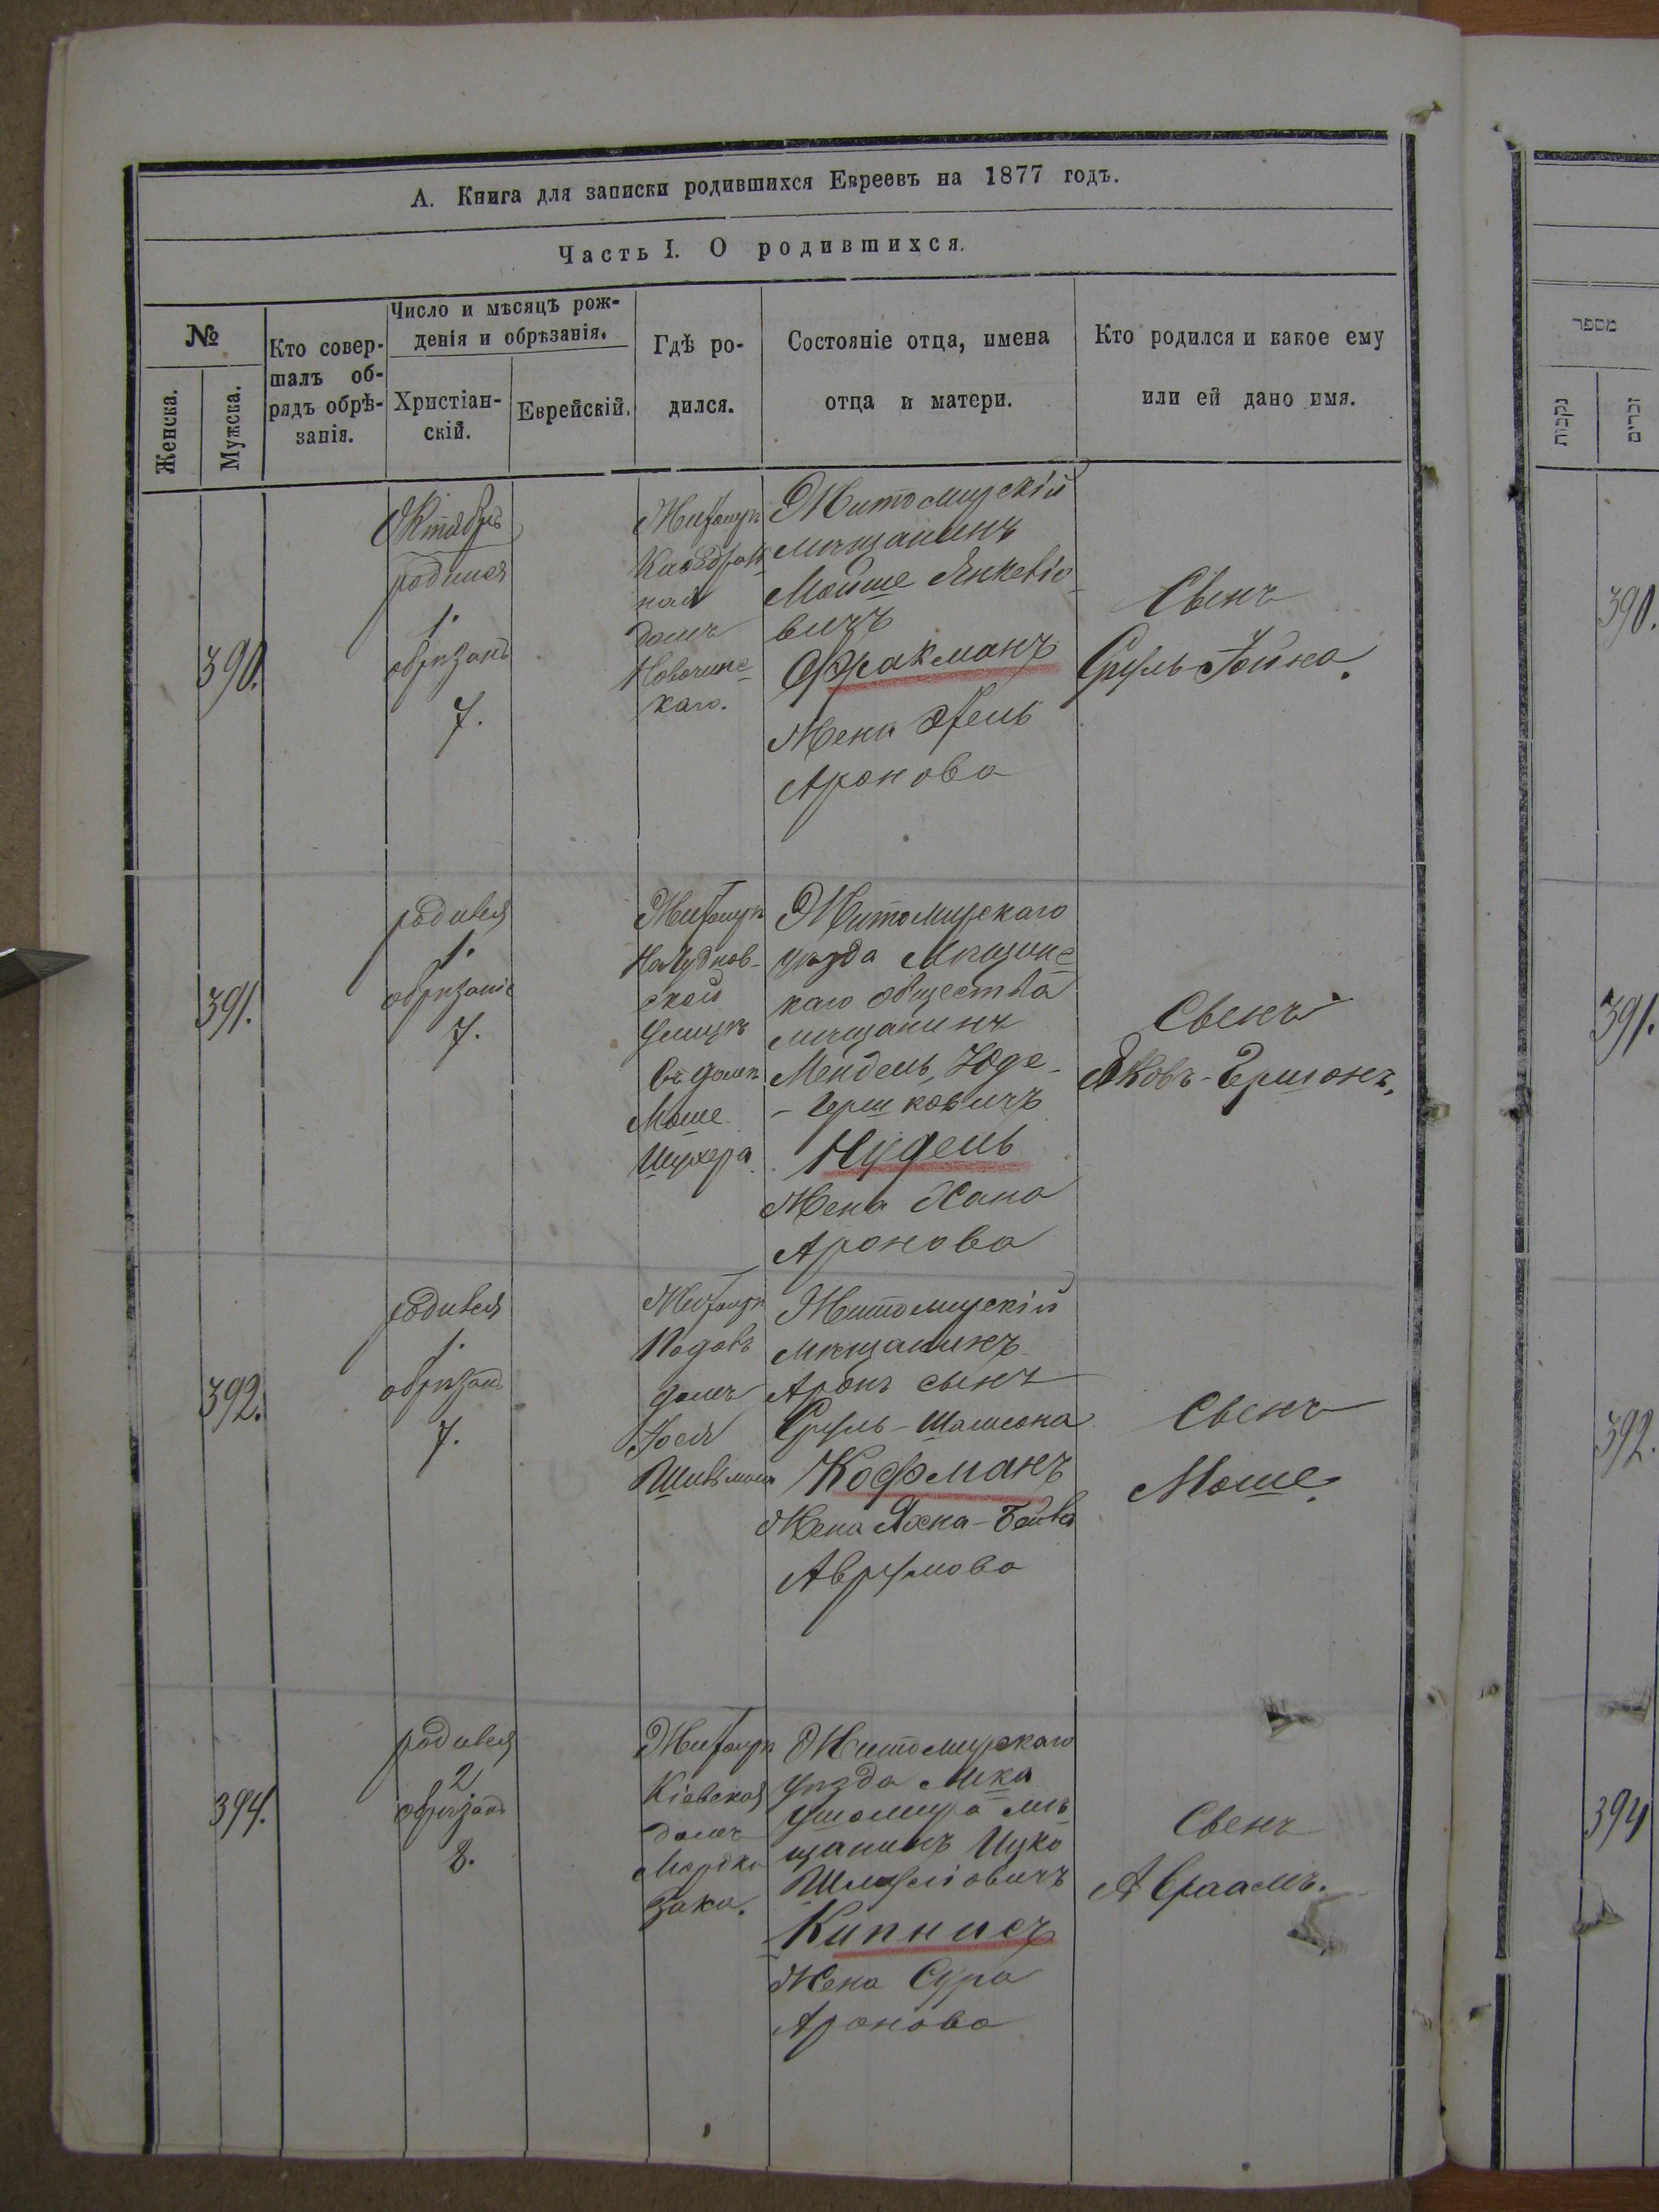 А. Книга для записки родившихся Евреевъ на 1877 годъ.
Часть I. О родившихся.
№
Женска.
Мужска.
Кто совер-
шалъ об-
рядъ обрѣ-
занія.
Число и мѣсяцъ рож-
денія и обрѣзанія.
Христіан-
скій.
Еврейскій.
Гдѣ ро-
дился.
Состояніе отца, имена
отца и матери.
Кто родился и какое ему
или ей дано имя.
390.
Октябрь
родился
1.
обрѣзанъ
7.
домъ
каго.
Житомирскій
мѣщанинъ
Мойше
вичъ
Фракманъ
Жена
Аронова
Свенъ
Сруль
391.
родився
1.
обрѣзаніе
7.
ской
улицѣ
въ домѣ
Моше
Шухера
Житомирскаго
уѣзда
каго общества
мѣщанинъ
Мендель, Юде-
-Гершковичъ
Нудель
Жена Хана
Аронова
Свенъ
Яковъ-Гершонъ.
392.
родився
1.
обрѣзанъ
7.
домъ
Житомирскій
мѣщанинъ
Аронъ сынъ
Сруль-Шамсона
Кофманъ
Жена Яхна-Бейла
Аврумова
Свенъ
Моше.
394.
родився
2
обрѣзанъ
8.
Кіевская
домъ
Мордко
Зака.
Житомирскаго
уѣзда мѣка
Ушомира мѣ
щанинъ Ицко
Шмуліовичъ
Кипнисъ
Жена Сура
Аронова
Свенъ
Авраамъ.
מספר
נקבות
זכרים
390.
391.
392.
394